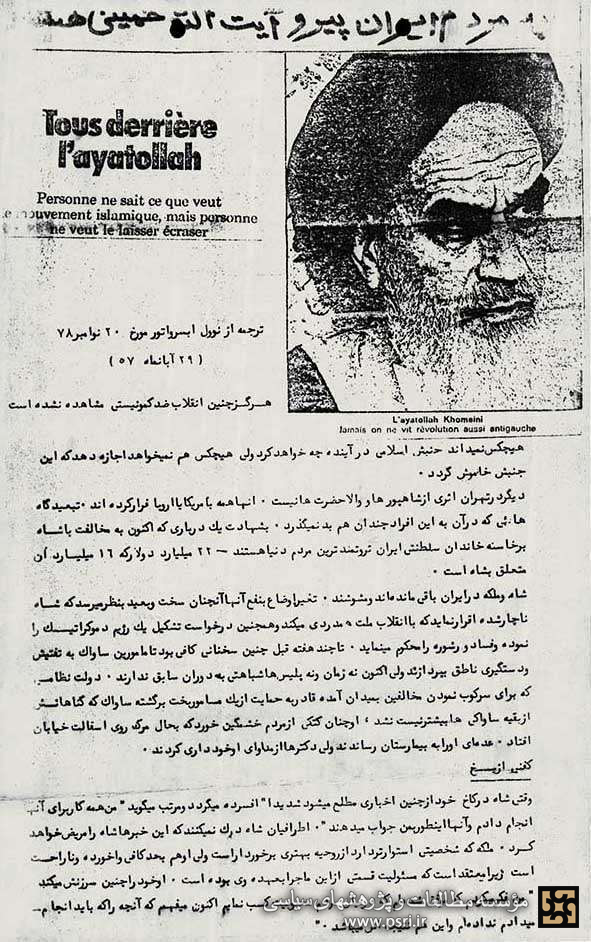 مردم ایران پیرو آیت الله خمینی هستند
Tous derrière
l'ayatollah
Personne ne sait ce que veut
le mouvement islamique, mais personne
ne veut le laisser écraser
ترجمه از نوول ابسرواتور مورخ ۲۰ نوامبر ۷۸
( ۲۹ آبانماه ۵۷ )
هرگز چنین انقلاب ضدکمونیستی مشاهده نشده است
L'ayatollah Khomeini
Jamais on ne vit révolution aussi antigauche
هیچکس نمیداند جنبش اسلامی در آینده چه خواهد کرد ولی هیچکس هم نمیخواهد اجازه دهد که این
جنبش خاموش گردد ۰
دیگر در تهران اثری از شاهپورها و والاحضرت ها نیست ۰ انها همه بامریکا یا اروپا فرار کرده اند ۰ تبعیدگاه
هائی که در آن به این افراد چندان هم بد نمیگذرد ۰ بشهادت یك درباری که اکنون به مخالفت با شاه
برخاسته خاندان سلطنتی ایران ثروتمند ترین مردم دنیا هستند — ۲۲ میلیارد دولار که ۱۶ میلیارد آن
متعلق بشاه است ۰
شاه و ملکه در ایران باقی مانده اند و مشوشند ۰ تغییر اوضاع بنفع آنها آنچنان سخت و بعید بنظر میرسد که شاه
ناچار شده اقرار نماید که با انقلاب ملت همدردی میکند و همچنین درخواست تشکیل یك رژیم دموکراتیك را
نموده و فساد و رشوه را محکوم مینماید ۰ تا چند هفته قبل چنین سخنانی کافی بود تا مامورین ساواك به تفتیش
و دستگیری ناطق بپردازند ولی اکنون نه زمان و نه پلیس ها شباهتی به دوران سابق ندارند ۰ دولت نظامی
که برای سرکوب نمودن مخالفین بمیدان آمده قادر به حمایت از یك مامور بخت برگشته ساواك که گناهانش
از بقیه ساواکی ها بیشتر نیست نشد ، او چنان کتکی از مردم خشمگین خورد که بحال مرگ روی اسفالت خیابان
افتاد ۰ عده ای او را به بیمارستان رساندند ولی دکترها از مداوای او خودداری کردند ۰
وقتی شاه در کاخ خود از چنین اخباری مطلع میشود شدیدا" افسرده میگردد و مرتب میگوید " من همه کار برای آنها
انجام دادم و آنها اینطور بمن جواب میدهند "۰ اطرافیان شاه درك نمیکنند که این خبرها شاه را مریض خواهد
کرد ۰ ملکه که شخصیتی استوارتر دارد از روحیه بهتری برخوردار است ولی او هم بحد کافی واخورده و ناراحت
است زیرا معتقد است که مسئولیت قسمتی از این ماجرا بعهده وی بوده است ۰ او خود را چنین سرزنش میکند
کسب نمایم اکنون میفهم که آنچه را که باید انجام
میدادم نداده ام و این
مؤسسه مطالعات و پژوهشهای سیاسی
www.psri.ir